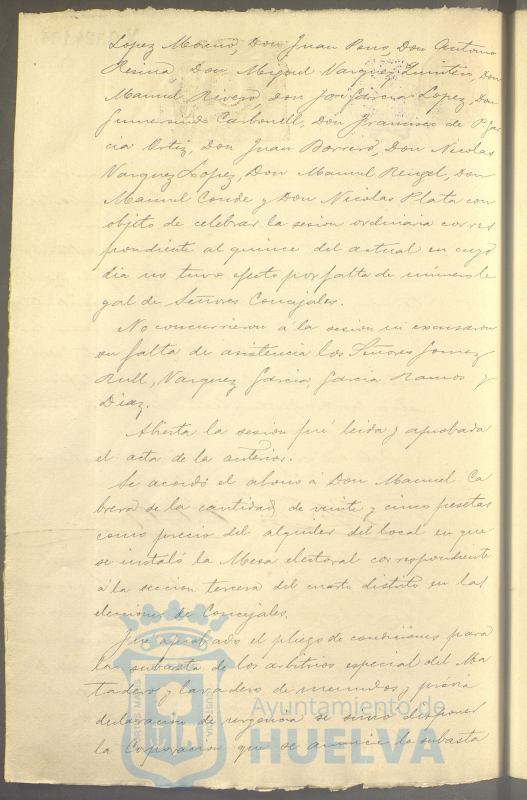 Lopez Moreno, Don Juan Pons, Don Antonio
Resina, Don Miguel Vazquez Limon, Don
Manuel Rivero, Don José Garcia Lopez, Don
Carbonell, Don Francisco de P. Gar
cia Ortiz, Don Juan Borrero, Don Nicolas
Vazquez Lopez, Don Manuel Rengel, Don
Manuel Conde y Don Nicolas Plata con
objeto de celebrar la sesion ordinaria corres
pondiente al quince del actual en cuyo
dia no tuvo efecto por falta de número le
gal de Señores Concejales.
No concurrieron á la sesion ni excusaron
su falta de asistencia los Señores Gomez
Rull, Vazquez Garcia, Garcia Ramos y
Diaz.
Abierta la sesion fué leida y aprobada
el acta de la anterior.
Se acordó el abono á Don Manuel Ca
brera de la cantidad de veinte y cinco pesetas
como precio del alquiler del local en que
se instaló la Mesa electoral correspondiente
á la seccion tercera del cuarto distrito en las
elecciones de Concejales.
Fué aprobado el pliego de condiciones para
la subasta de los arbitrios especial del Ma
tadero y lavadero de menudos, y previa
declaracion de urgencia se sirvió disponer
la Corporacion que se anuncie la subasta
Ayuntamiento de
HUELVA